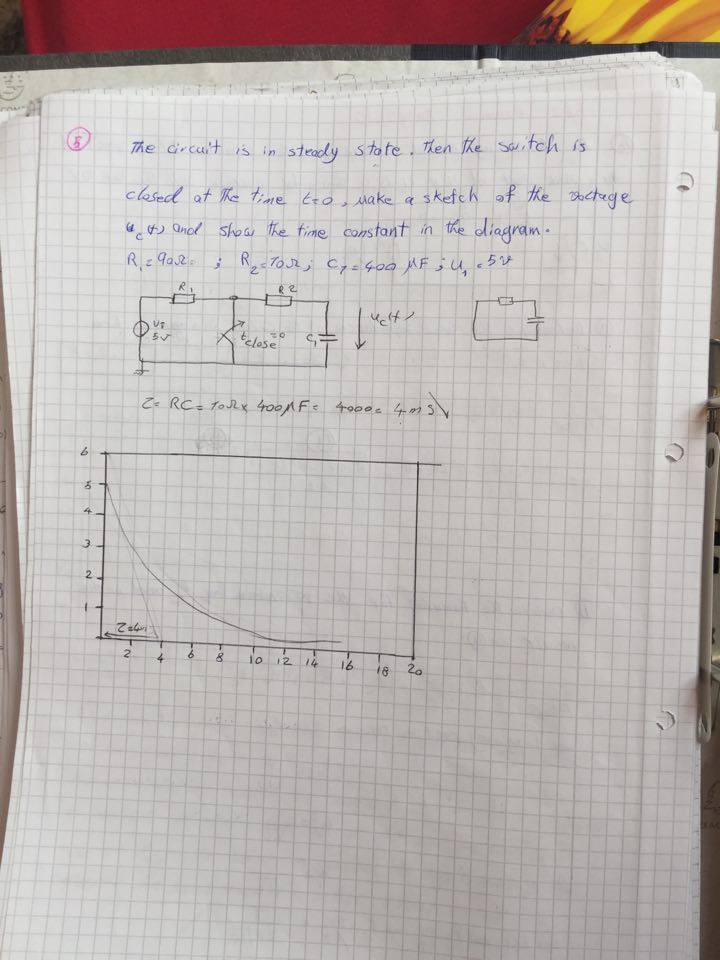 5
The circuit is in steady state. Then the switch is
closed at the time t=0, make a sketch of the voltage
u_c(t) and show the time constant in the diagram.
R₁=90Ω ; R₂=10Ω ; C₁=400 μF ; U₁=5V
R1 R2
U1
5V
t close =0 C₁ u_c(t)
τ= RC= 10Ω× 400μF= 4000= 4mS
6
5
4
3
2
1
τ=4m
2 4 6 8 10 12 14 16 18 20